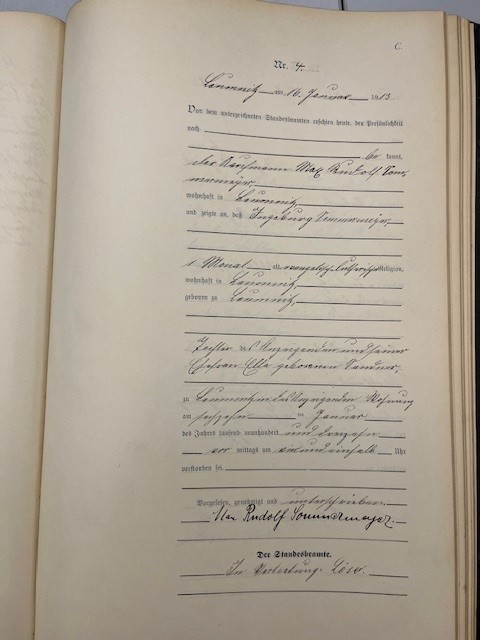 C.
Nr. 4.
Leumnitz am 16. Januar 1913.
Vor dem unterzeichneten Standesbeamten erschien heute, der Persönlichkeit
nach
be kannt,
der Kaufmann Max Rudolf Som-
mermeyer,
wohnhaft in Leumnitz,
und zeigte an, daß Ingeburg Sommermeyer,
1 Monat alt, evangelisch-lutherischer Religion,
wohnhaft in Leumnitz,
geboren zu Leumnitz,
Tochter des Anzeigenden und seiner
Ehefrau Ella geborenen Sandner,
zu Leumnitz in des Anzeigenden Wohnung
am sechzehnten Januar
des Jahres tausend neunhundert und dreizehn
vor mittags um und einhalb Uhr
verstorben sei.
Vorgelesen, genehmigt und unterschrieben
Max Rudolf Sommermeyer.
Der Standesbeamte.
In Vertretung: Löser.